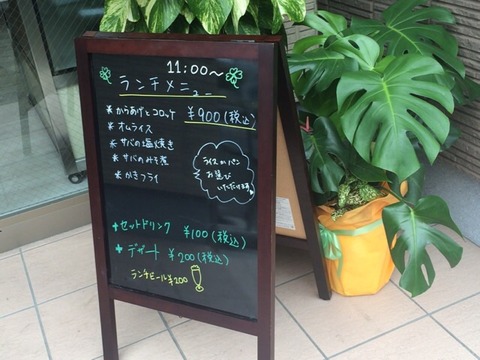 11:00〜
ランチメニュー
＊からあげとコロッケ ¥900(税込)
＊オムライス
＊サバの塩焼き
＊サバのみそ煮
＊かきフライ
ライスorパン
お選び
いただけます
+セットドリンク ¥100(税込)
+デザート ¥200(税込)
ランチビール¥200